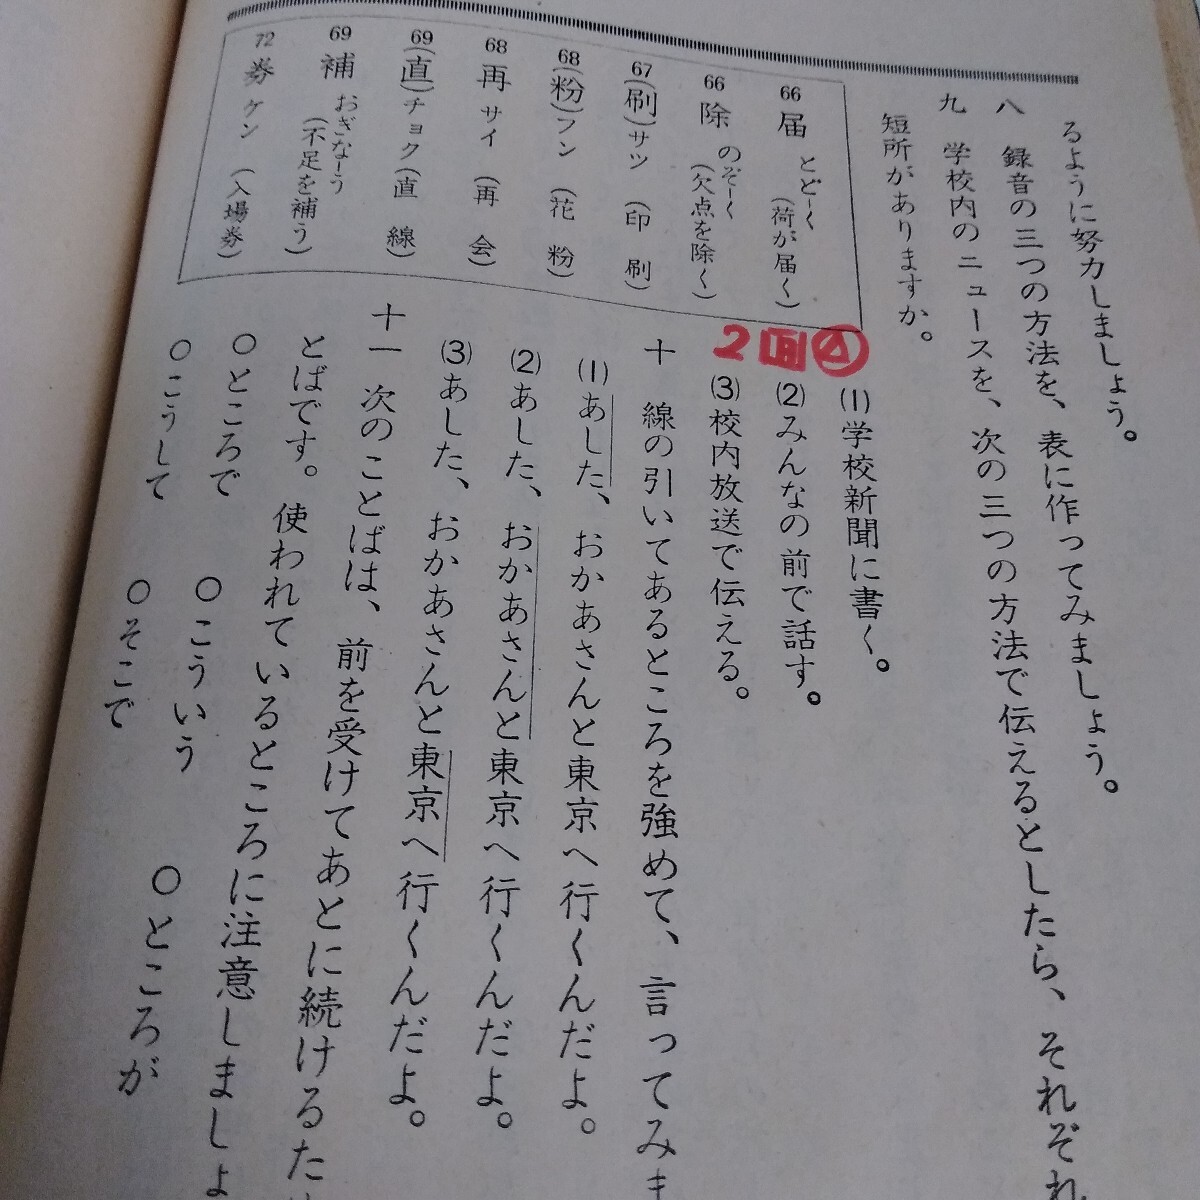 るように努力しましょう。
八　録音の三つの方法を、表に作ってみましょう。
九　学校内のニュースを、次の三つの方法で伝えるとしたら、それぞれ
短所がありますか。
(1)学校新聞に書く。
(2)みんなの前で話す。
(3)校内放送で伝える。
十　線の引いてあるところを強めて、言ってみま
(1)あした、おかあさんと東京へ行くんだよ。
(2)あした、おかあさんと東京へ行くんだよ。
(3)あした、おかあさんと東京へ行くんだよ。
十一　次のことばは、前を受けてあとに続けるた
とばです。使われているところに注意しましょ
○ところで　○こういう　○ところが
○こうして　○そこで
66 届 とどーく (荷が届く)
66 除 のぞーく (欠点を除く)
67 (刷) サツ (印刷)
68 (粉) フン (花粉)
68 再 サイ (再会)
69 (直) チョク (直線)
69 補 おぎなーう (不足を補う)
72 券 ケン (入場券)
2